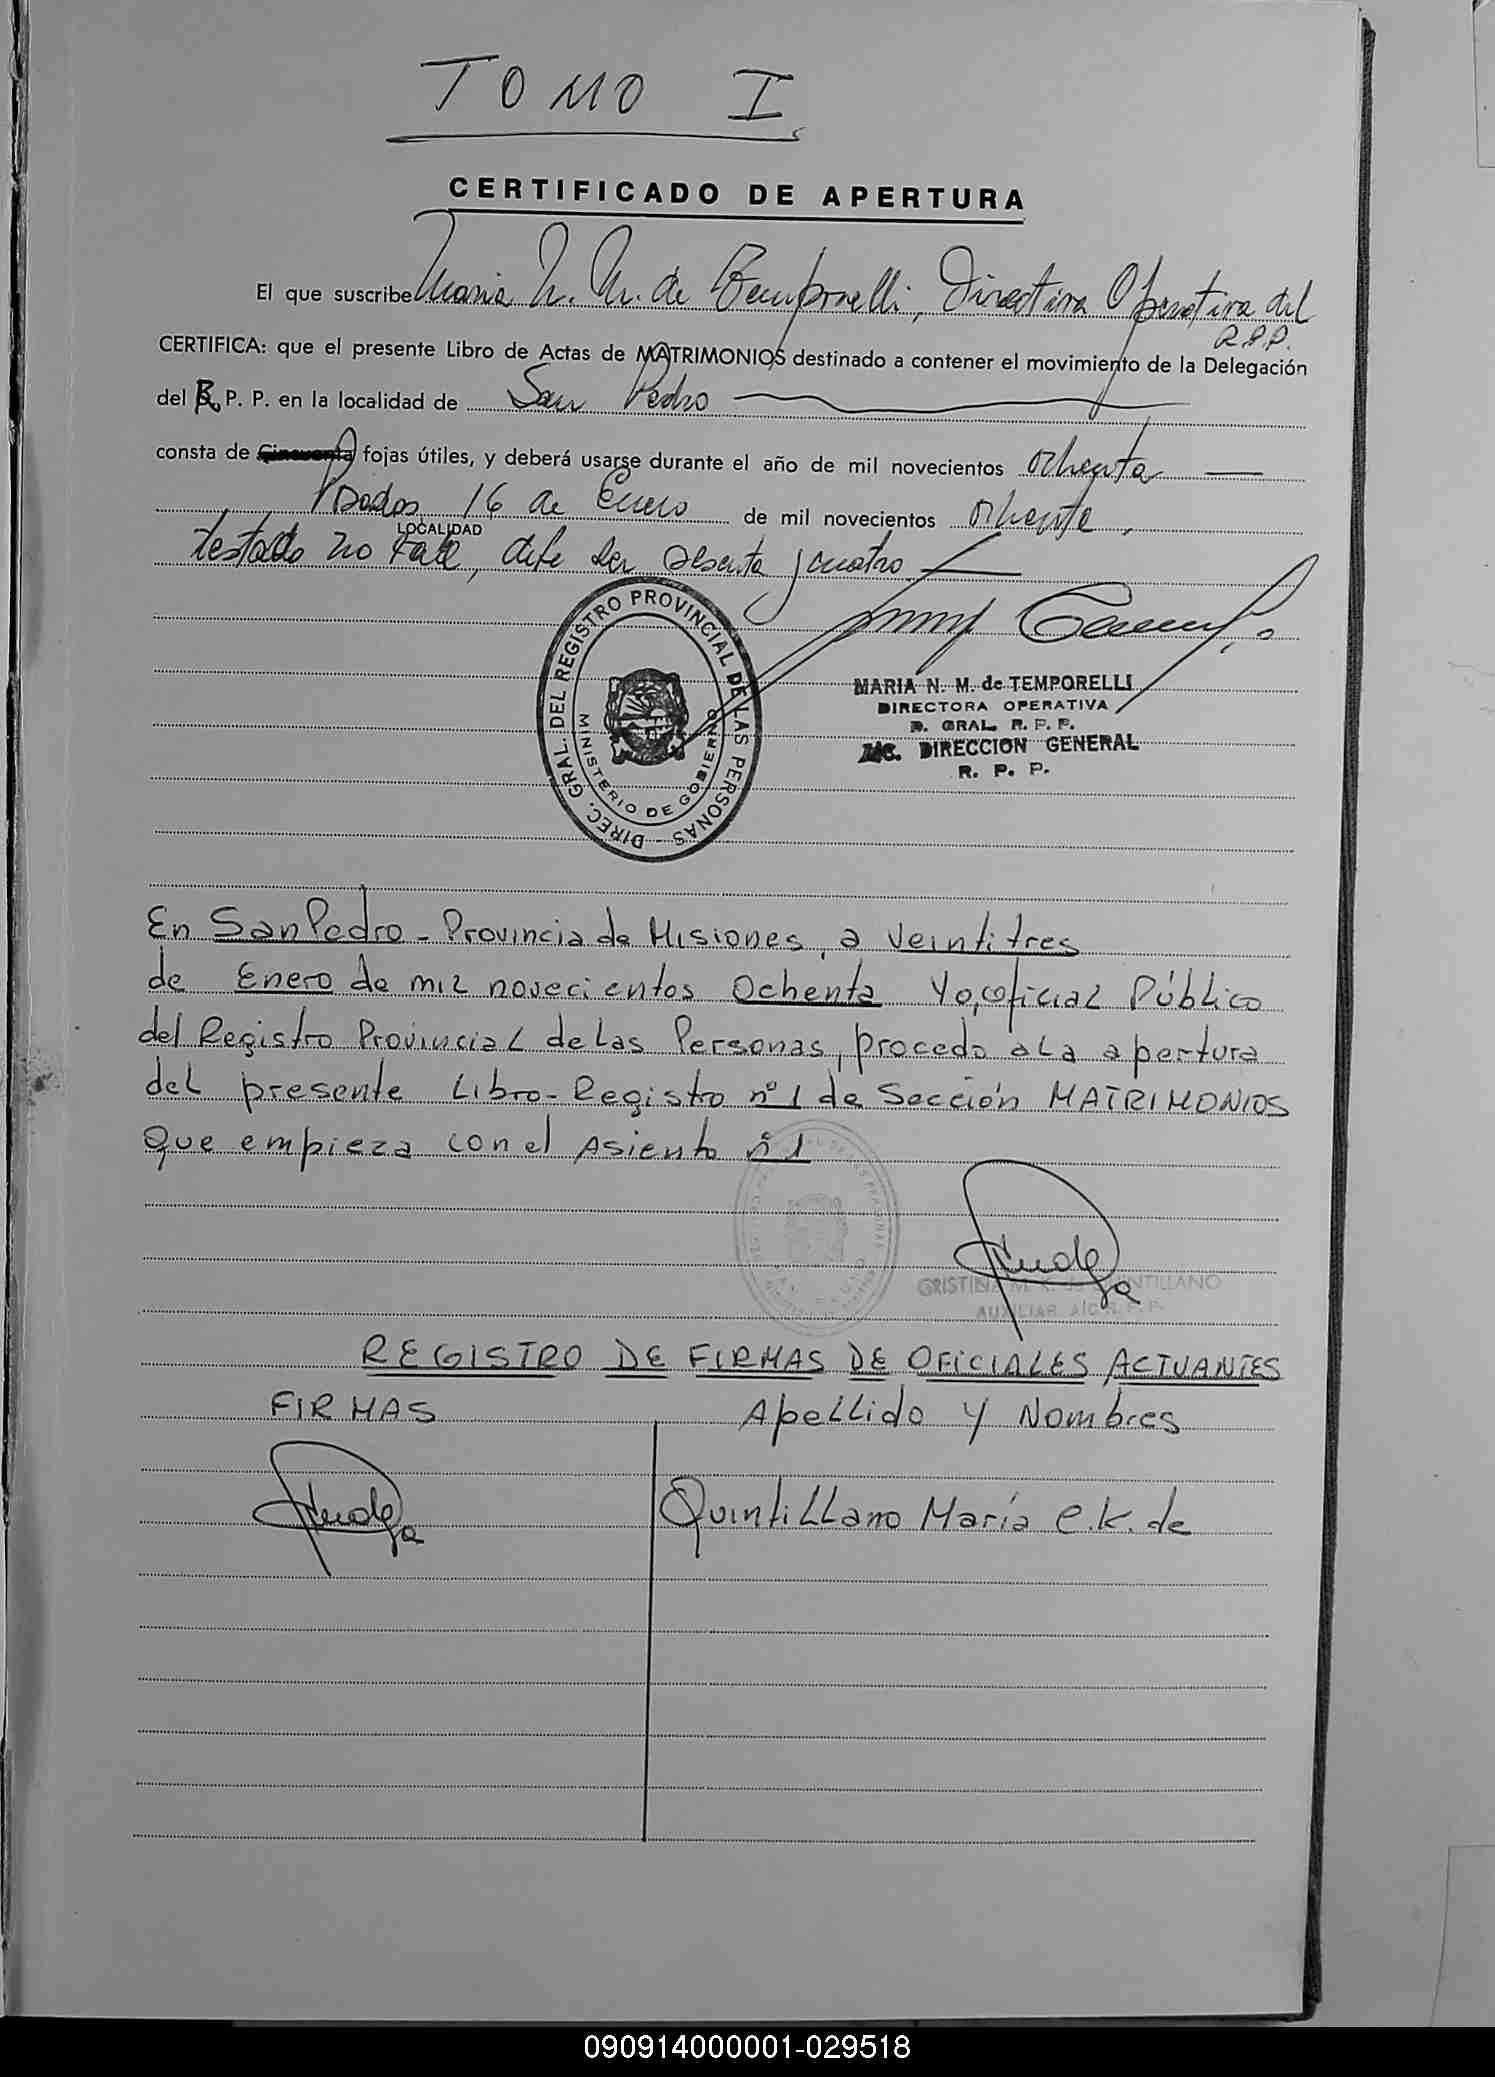 TOMO I
CERTIFICADO DE APERTURA
El que suscribe Maria N. M. de Temporelli, Directora Operativa del
R.P.P.
CERTIFICA: que el presente Libro de Actas de MATRIMONIOS destinado a contener el movimiento de la Delegación
del R. P. P. en la localidad de San Pedro
consta de Cincuenta fojas útiles, y deberá usarse durante el año de mil novecientos ochenta
Posadas, 16 de Enero de mil novecientos ochenta,
LOCALIDAD
testado no vale, debe ser sesenta y cuatro
DIREC. GRAL. DEL REGISTRO PROVINCIAL DE LAS PERSONAS -
MINISTERIO DE GOBIERNO
MARIA N. M. de TEMPORELLI
DIRECTORA OPERATIVA
D. GRAL. R. P. P.
A/C. DIRECCION GENERAL
R. P. P.
En San Pedro - Provincia de Misiones, a veintitres
de Enero de mil novecientos Ochenta Yo, oficial Público
del Registro Provincial de las Personas, procedo a la apertura
del presente Libro-Registro nº 1 de Sección MATRIMONIOS
que empieza con el Asiento nº 1
CRISTINA M. K. de QUINTILLANO
AUXILIAR A/C R. P. P.
REGISTRO DE FIRMAS DE OFICIALES ACTUANTES
FIRMAS Apellido y Nombres
Quintillano María C. K. de
090914000001-029518